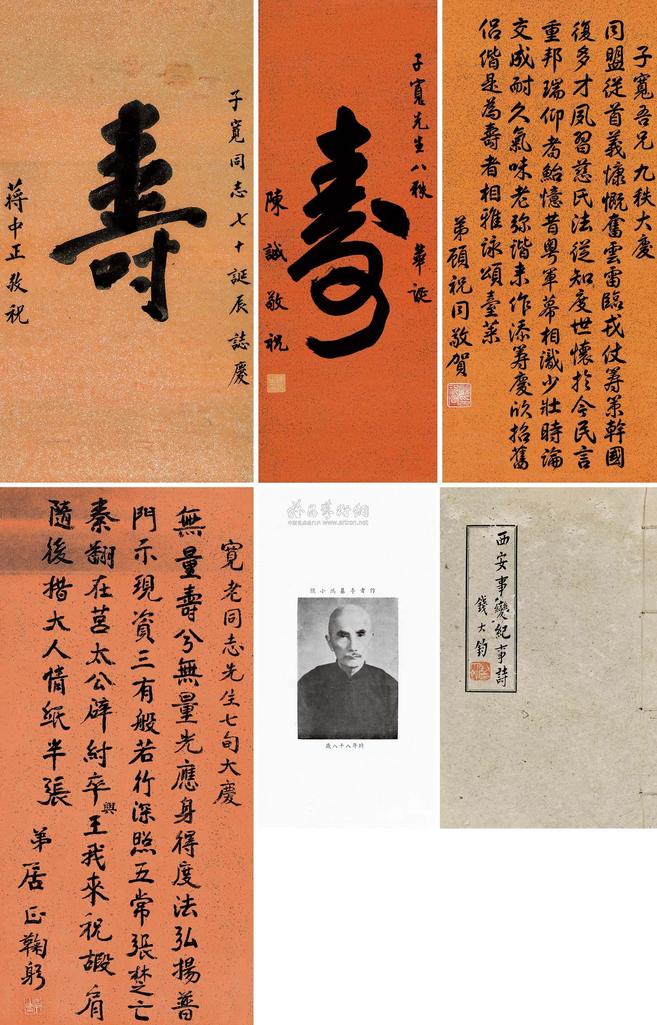 子寬同志七十誕辰誌慶
壽
蔣中正敬祝
子寬先生八秩 華誕
壽
陳誠敬祝
子寬吾兄 九秩大慶
同盟從首義慷慨奮雲雷臨戎仗籌策幹國
復多才夙習慈氏法從知度世懷於今民言
重邦瑞仰耇鮐憶昔粵軍幕相識少壯時論
交成耐久氣味老彌諧來作添籌慶欣招舊
侶偕是為壽者相雅詠頌臺萊
弟顧祝同敬賀
寬老同志先生七旬大慶
無量壽兮無量光應身得度法弘揚普
門示現資三有般若行深照五常張楚亡
秦翻在莒太公辟紂卒興王我來祝嘏肩
隨後措大人情紙半張
弟居正鞠躬
雅昌藝術網
www.artron.net
作者李基鴻小照
時年八十八歲
西安事變紀事詩
錢大鈞